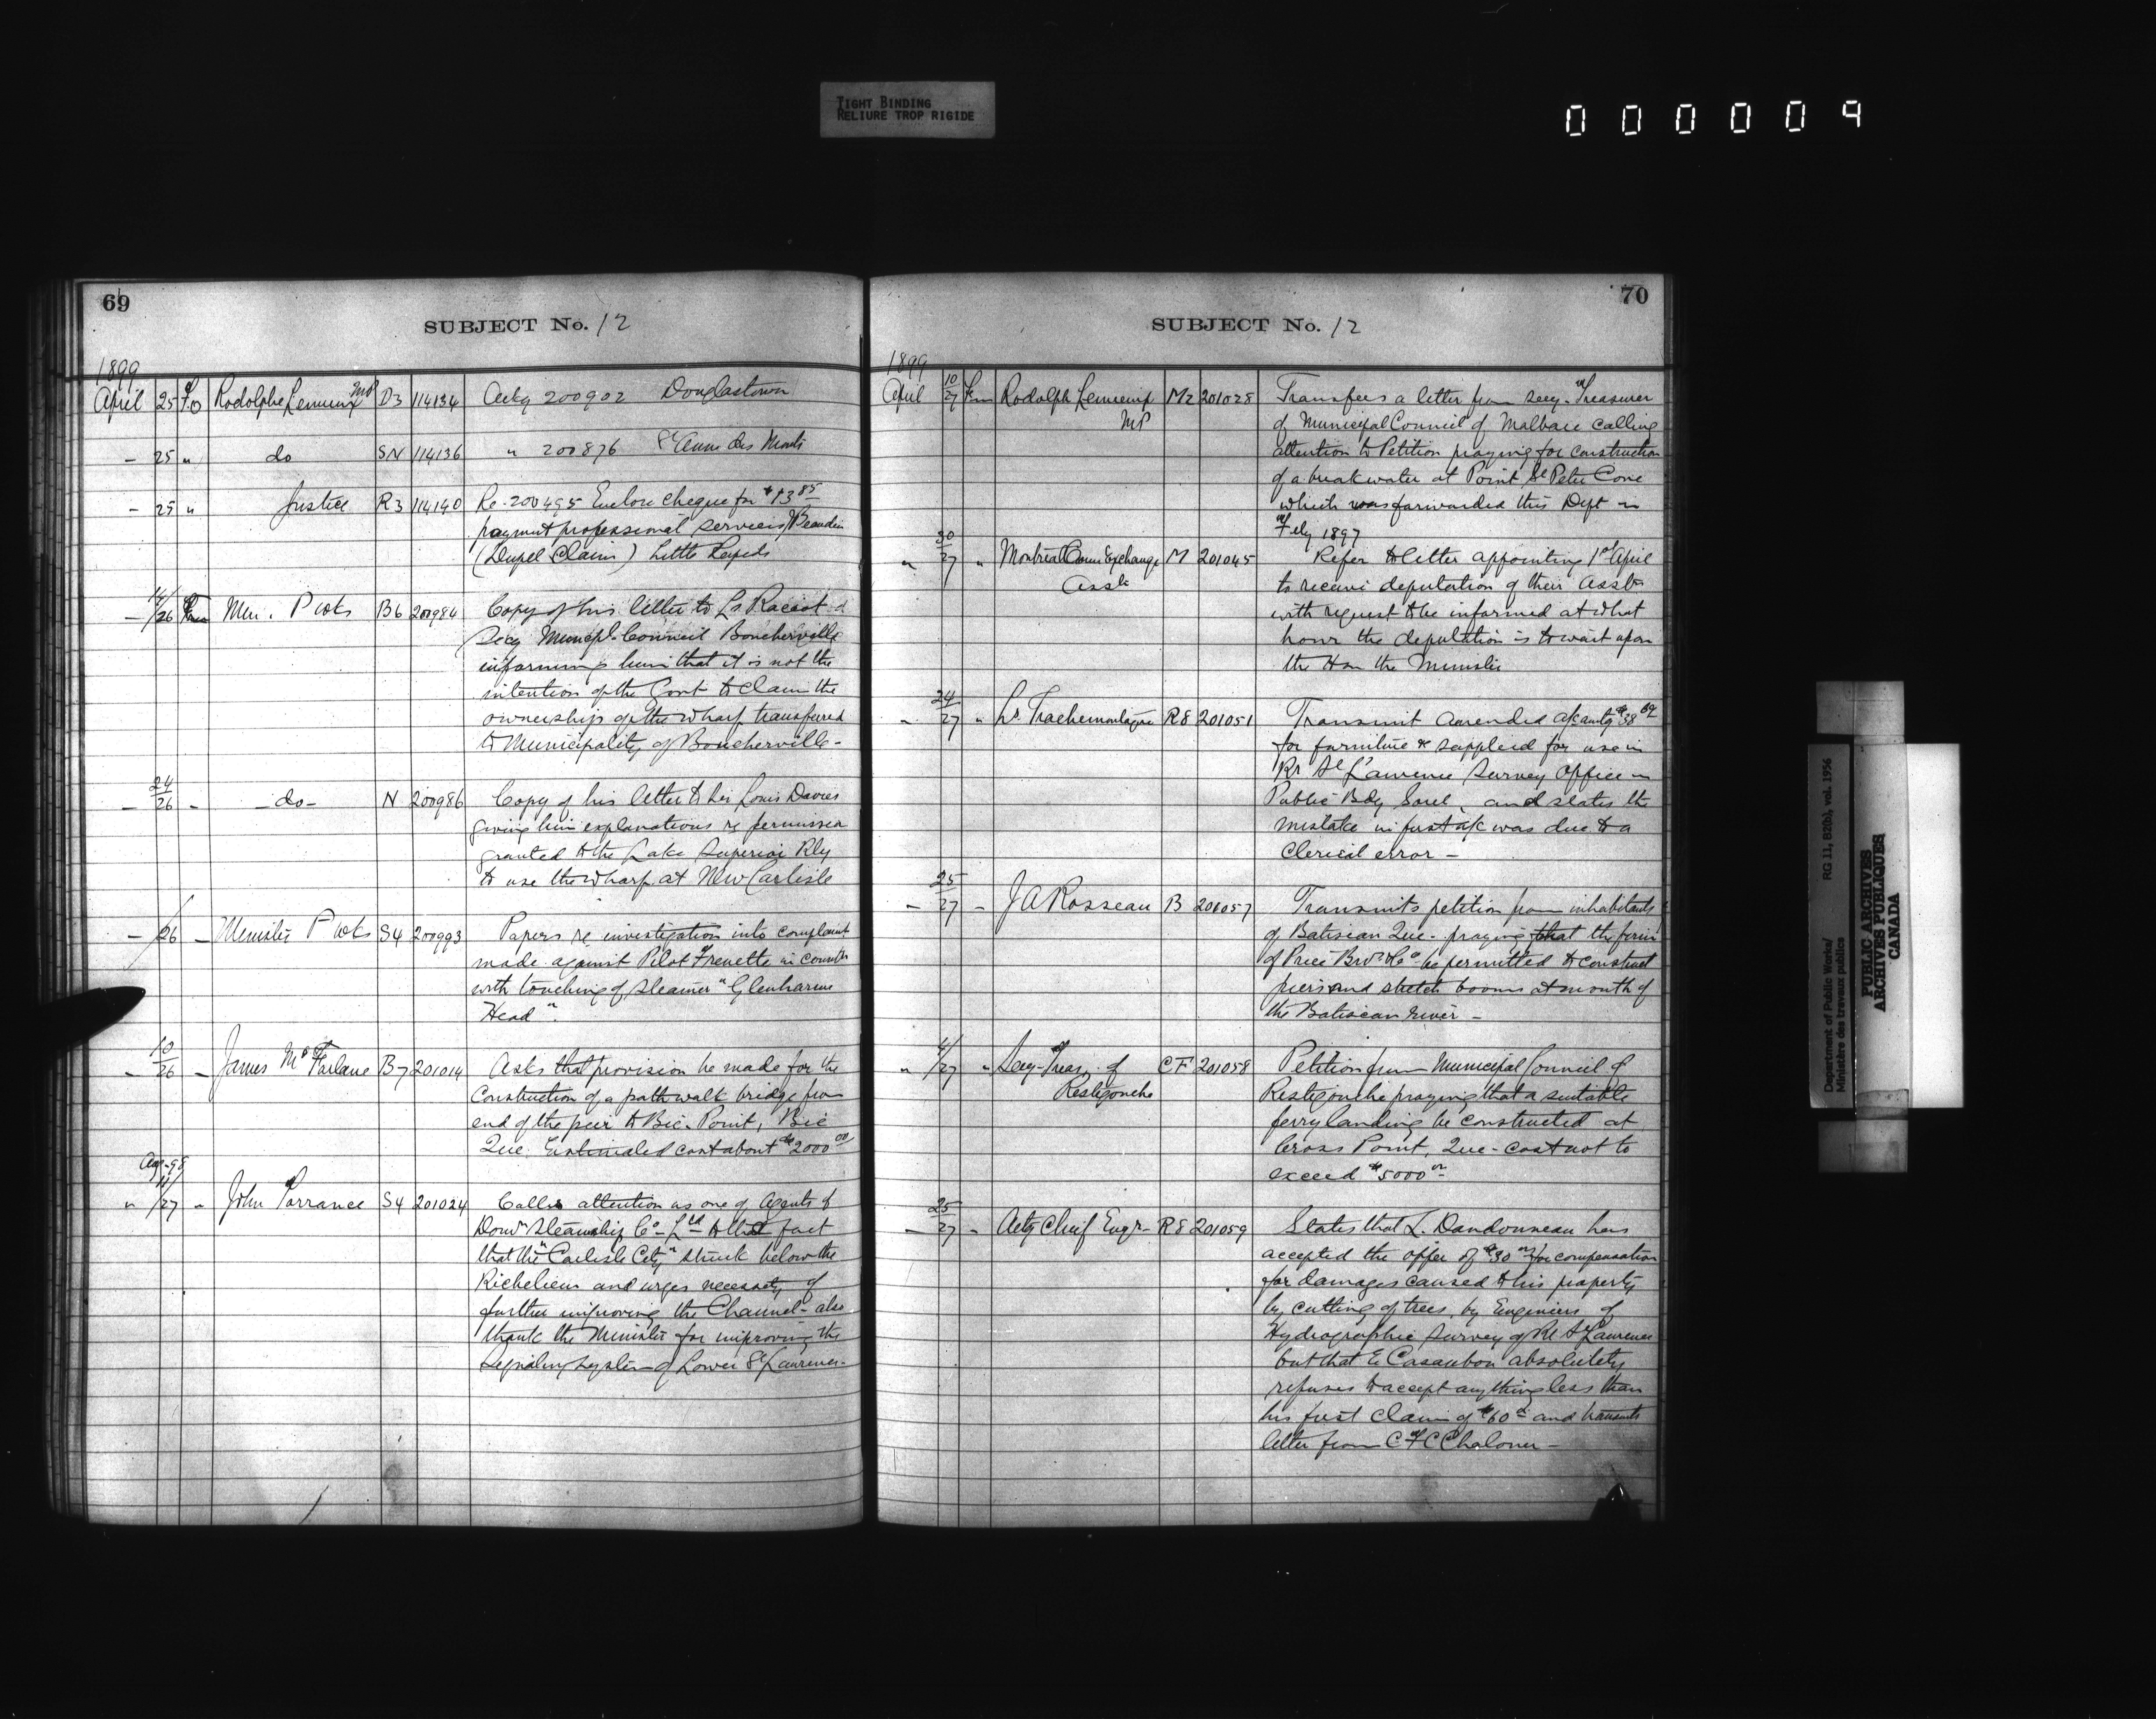 TIGHT BINDING
RELIURE TROP RIGIDE
000009
69
SUBJECT No. 12
1899
April 25 To Rodolphe Lemieux MP D3 114134 Ackg 200902 Douglastown
— 25 " do SN 114136 " 200876 St Anne des Monts
— 25 " Justice R3 114140 Re. 200495 Enclose cheque for $13 85
payment professional services Beaudin
(Dupel Claim) Little Rapids
14/26 From Min. P Wks B6 200984 Copy of his letter to Ls Racicot
Secy Municpl. Council Boucherville
informing him that it is not the
intention of the Govt to claim the
ownership of the wharf transferred
to Municipality of Boucherville -
— 24/26 - - do - N 200986 Copy of his letter to Sir Louis Davies
giving him explanations re permission
granted to the Lake Superior Rly
to use the wharf at New Carlisle
— /26 - Minister P Wks S4 200993 Papers re investigation into complaint
made against Pilot Frenette in
with touching of Steamer "Glenharm
Head".
- 10/26 - James McFarlane B7 201014 Asks that provision be made for the
Construction of a path walk bridge from
end of the pier to Bic. Point, Bic
Que. Estimated cost about $2000 00
Aug-98
" 11/27 " John Torrance S4 201024 Calls attention as one of Agents of
Domn Steamship Co - Ltd to the fact
that the "Carlisle City" struck below the
Richelieu and urges necessity of
further improving the Channel - also
thank the Minister for improving the
Signaling System of Lower St Lawrence -
70
SUBJECT No. 12
1899
April 10/27 From Rodolph Lemieux M2 201028 Transfers a letter from Secy-Treasurer
MP of Municipal Council of Malbaie calling
attention to Petition praying for construction
of a breakwater at Point St Peter Cove
which was forwarded this Dept in
Feby 1897
" 30/27 " Montreal Corn Exchange M 201045 Refer to letter appointing 1st April
Assn to receive deputation of their Assn
with request to be informed at what
hour the deputation is to wait upon
the Hon the Minister
" 24/27 " Ls. Trachemontagne R8 201051 Transmit amended a/c amtg $38
for furniture & supplied for use in
Rr St Lawrence Survey Office in
Public Bdg Sorel, and states the
mistake in first a/c was due to a
Clerical error -
- 25/27 - J A Rosseau B 201057 Transmits petition from inhabitants
of Batiscan Que - praying that the firm
of Price Bros & Co be permitted to construct
piers and stretch booms at mouth of
the Batiscan river -
" 4/27 " Secy-Treas. of CF 201058 Petition from Municipal Council of
Restigouche Restigouche praying that a suitable
ferry landing be constructed at
Cross Point, Que - cost not to
exceed $5000 00
- 25/27 - Actg Chief Engr - R8 201059 States that L. Dandonneau has
accepted the offer of $30 00 for compensation
for damages caused to his property
by cutting of trees by Engineers of
Hydrographic Survey of Rr St Lawrence
but that E Casaubon absolutely
refuses to accept anything less than
his first claim of $60 and transmits
letter from C F C Chaloner -
Department of Public Works/ RG 11, B2(b), vol. 1956
Ministère des travaux publics
PUBLIC ARCHIVES
ARCHIVES PUBLIQUES
CANADA